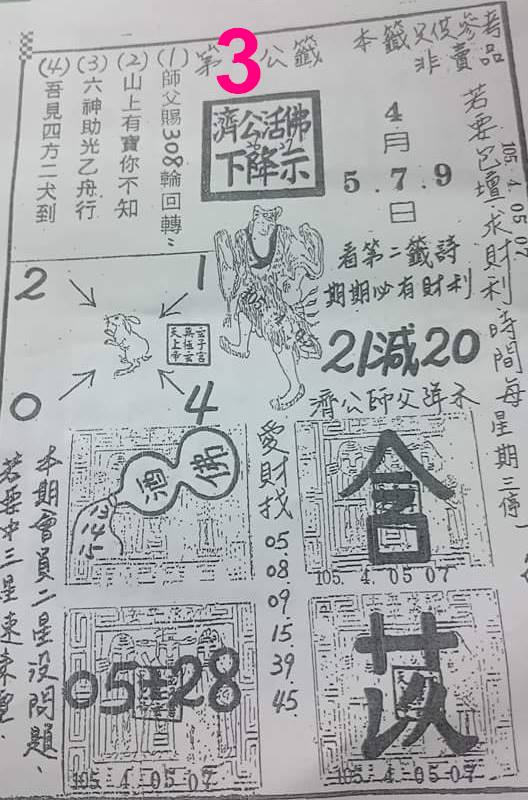 第3公籤
本籤只供參考
非賣品
(1)師父賜308輪回轉
(2)山上有寶你不知
(3)六神助光乙舟行
(4)吾見四方二犬到
濟公活佛
下降示
4
月
5.7.9
日
若要包壇求財利時間每星期三停
105.4.05
看第二籤詩
期期必有財利
21減20
2
1
0
4
玄子宮
天上帝
濟公師父降示
酒
佛
13
14
15
愛財找
05
08
09
15
39
45
105.4.05 07
05 28
105.4.05 07
105.4.05 07
本期會員二星沒問題
若要中三星速來